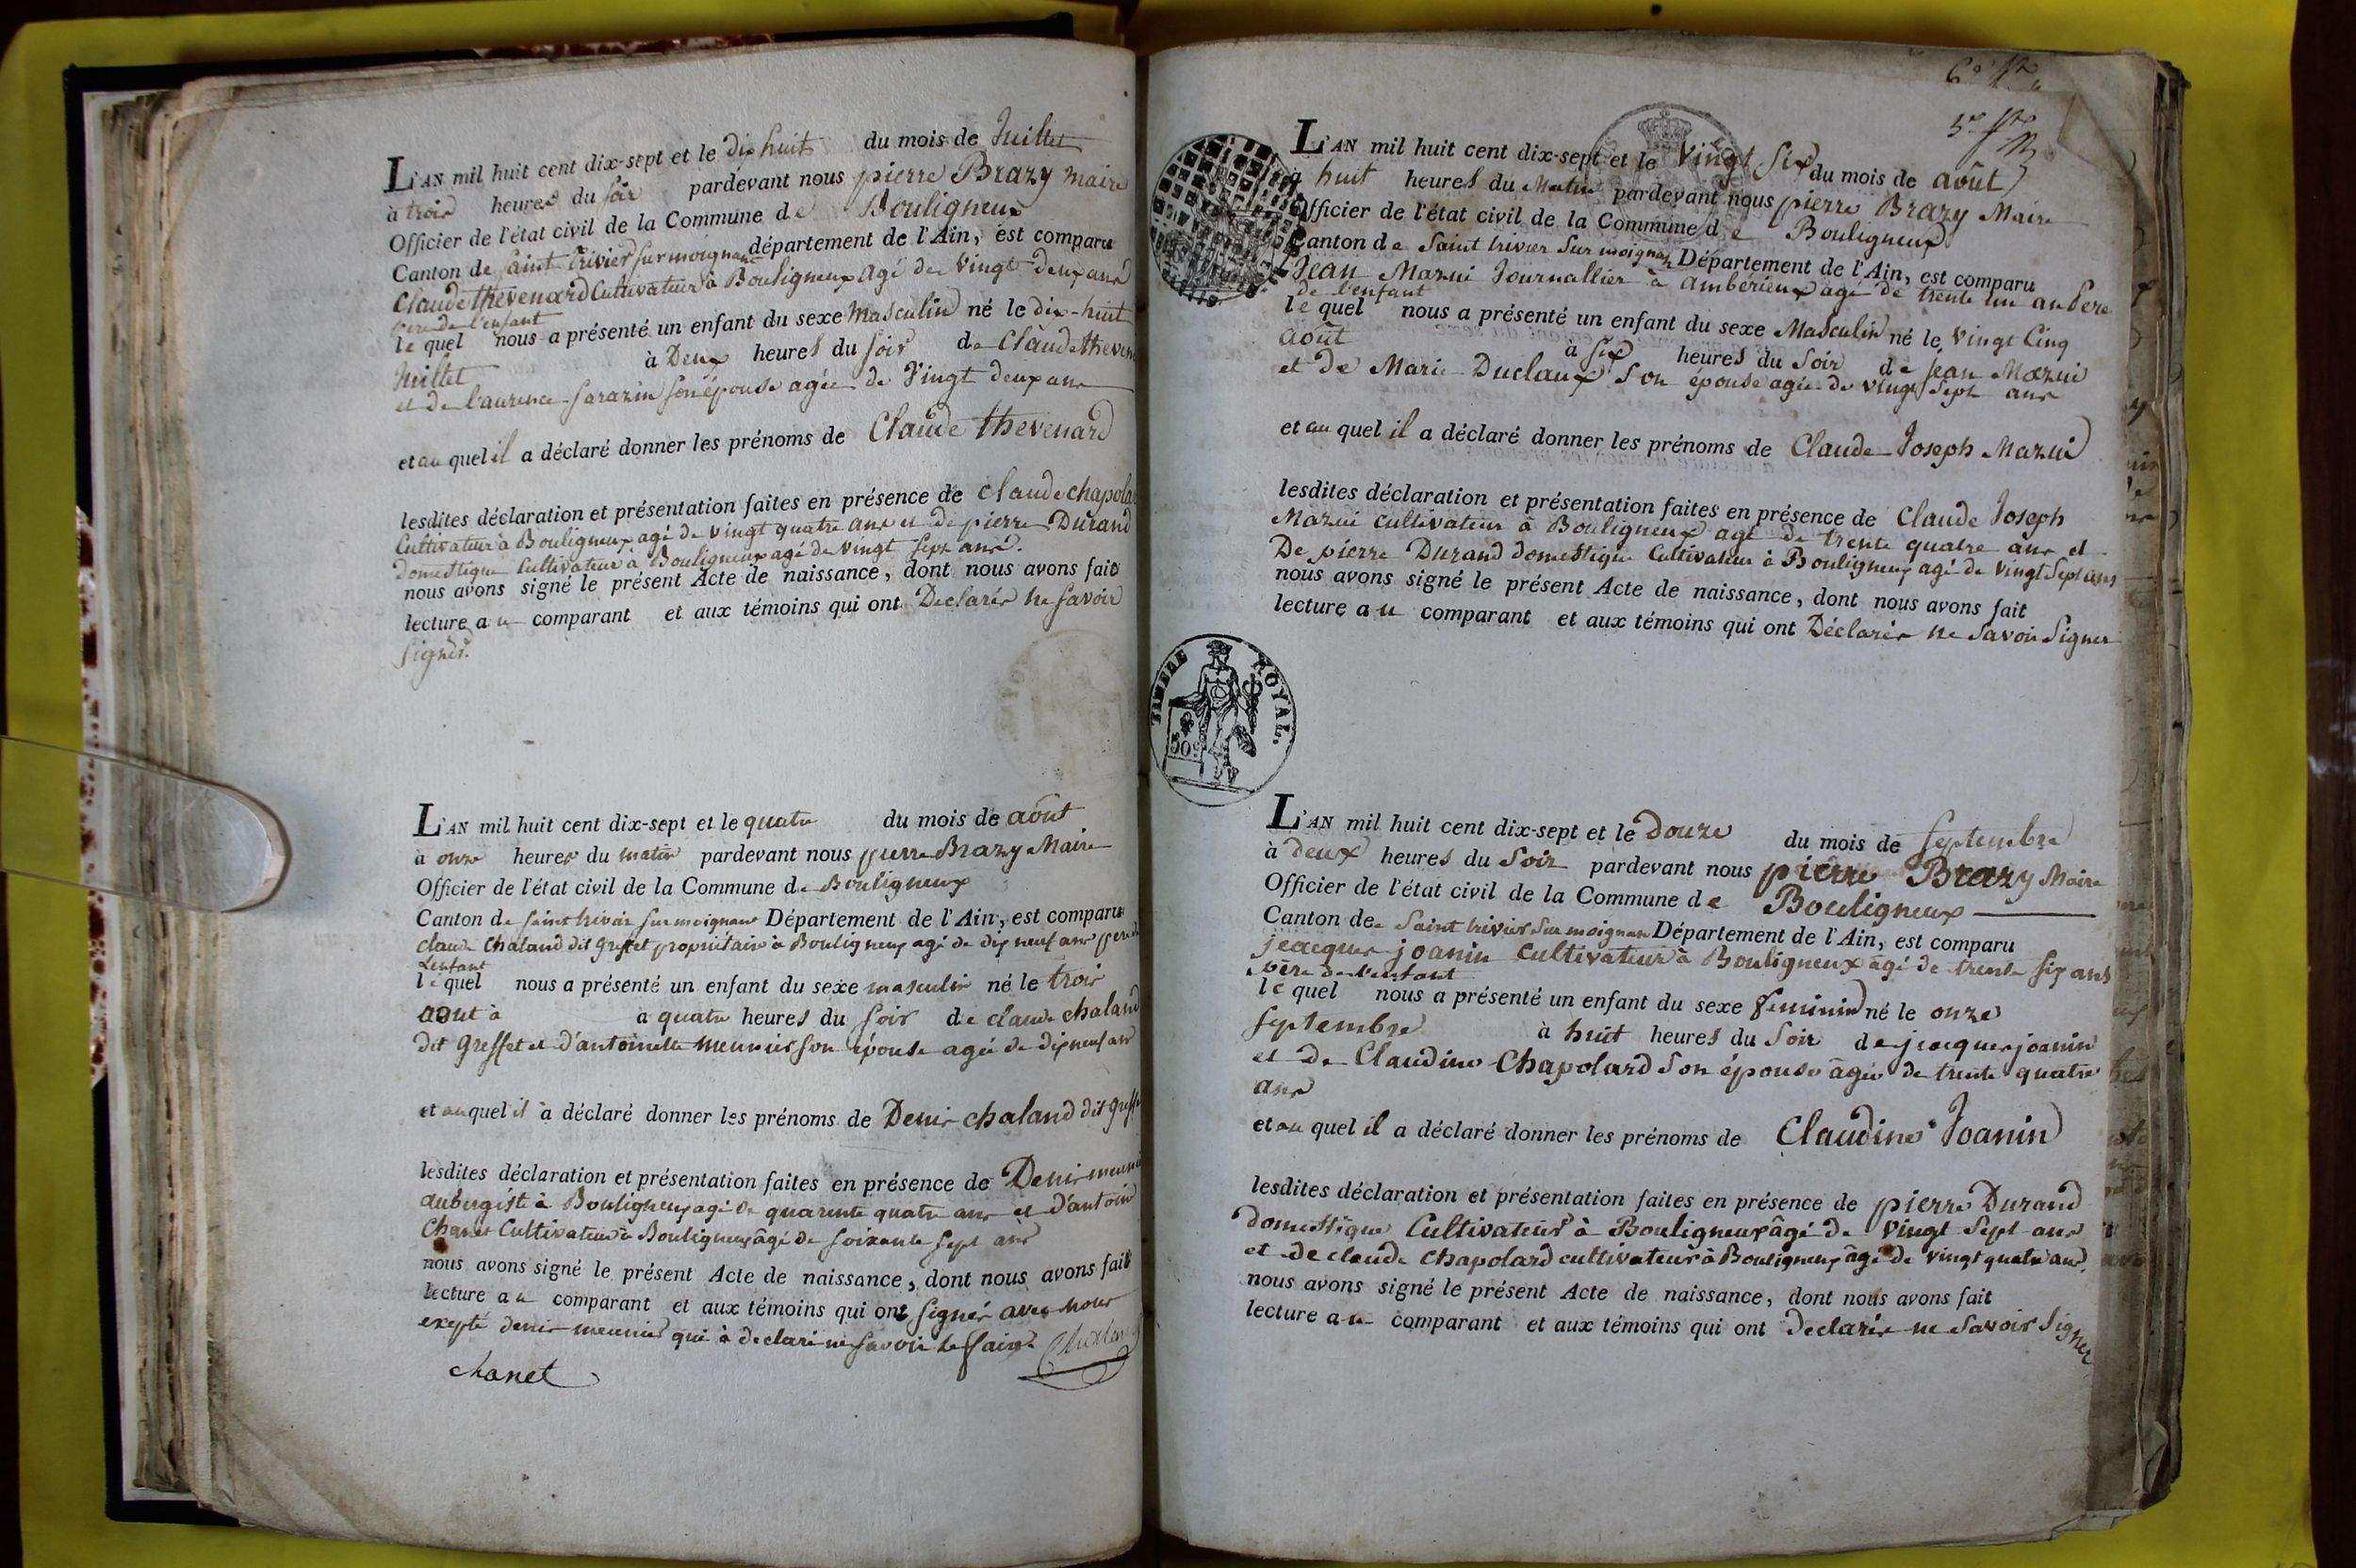 L'AN mil huit cent dix-sept et le dix huit du mois de Juillet
à trois heures du soir pardevant nous pierre Brazy maire
Officier de l'état civil de la Commune de Bouligneux
Canton de saint trivier sur moignans département de l'Ain, est comparu
Claude thevenard Cultivateur à Bouligneux agé de vingt deux ans
pere de l'enfant
le quel nous a présenté un enfant du sexe masculin né le dix-huit
Juillet à Deux heures du soir de Claude theven
et de laurence sarazin son épouse agée de Vingt deux ans
et au quel il a déclaré donner les prénoms de Claude thevenard
lesdites déclaration et présentation faites en présence de claude chapolar
Cultivateur à Bouligneux agé de vingt quatre ans et de pierre Durand
domestique Cultivateur à Bouligneux agé de vingt sept ans.
nous avons signé le présent Acte de naissance, dont nous avons fait
lecture au comparant et aux témoins qui ont Declarés ne savoir
signer.
L'AN mil huit cent dix-sept et le quatre du mois de août
à onze heures du matin pardevant nous pierre Brazy Maire
Officier de l'état civil de la Commune de Bouligneux
Canton de saint trivier sur moignans Département de l'Ain, est comparu
claude chaland dit greffet propriétaire à Bouligneux agé de dix neuf ans pere de
l'enfant
le quel nous a présenté un enfant du sexe masculin né le trois
aout à à quatre heures du soir de claude chaland
dit greffet et d'antoinette meunier son épouse agée de dix neuf ans
et au quel il a déclaré donner les prénoms de Denis chaland dit greff
lesdites déclaration et présentation faites en présence de Denis meuni
aubergiste à Bouligneux agé de quarente quatre ans et d'antoin
Chanet Cultivateur à Bouligneux âgé de soixante sept ans
nous avons signé le présent Acte de naissance, dont nous avons fait
lecture au comparant et aux témoins qui ont signés avec nous
exepté denis meunier qui à declaré ne savoir le faire
chanet
L'AN mil huit cent dix-sept et le vingt six du mois de août
à huit heures du Matin pardevant nous pierre Brazy Maire
Officier de l'état civil de la Commune de Bouligneux
Canton de Saint trivier Sur moignans Département de l'Ain, est comparu
Jean Mazui Journallier à ambérieux agé de trente un an pere
de l'enfant
le quel nous a présenté un enfant du sexe Masculin né le vingt Cinq
août à six heures du Soir de jean Mazui
et de Marie Duclaux Son épouse agée de vingt Sept ans
et au quel il a déclaré donner les prénoms de Claude Joseph Mazui
lesdites déclaration et présentation faites en présence de Claude Joseph
Mazui cultivateur à Bouligneux agé de trente quatre ans et
De pierre Durand domestique Cultivateur à Bouligneux agé de vingt Sept ans
nous avons signé le présent Acte de naissance, dont nous avons fait
lecture au comparant et aux témoins qui ont Déclarés ne Savoir Signer
TIMBRE ROYAL.
L'AN mil huit cent dix-sept et le Douze du mois de Septembre
à deux heures du Soir pardevant nous pierre Brazy Maire
Officier de l'état civil de la Commune de Bouligneux
Canton de Saint trivier Sur moignans Département de l'Ain, est comparu
jeacques joanin Cultivateur à Bouligneux âgé de trente six ans
père de l'enfant
le quel nous a présenté un enfant du sexe feminin né le onze
septembre à huit heures du Soir de jeacques joanin
et de Claudine Chapolard Son épouse âgée de trente quatre
ans
et au quel il a déclaré donner les prénoms de Claudine Joanin
lesdites déclaration et présentation faites en présence de pierre Durand
domestique Cultivateur à Bouligneux âgé de vingt Sept ans
et de claude Chapolard cultivateur à Bouligneux âgé de vingt quatre ans.
nous avons signé le présent Acte de naissance, dont nous avons fait
lecture au comparant et aux témoins qui ont declarés ne Savoir Signer